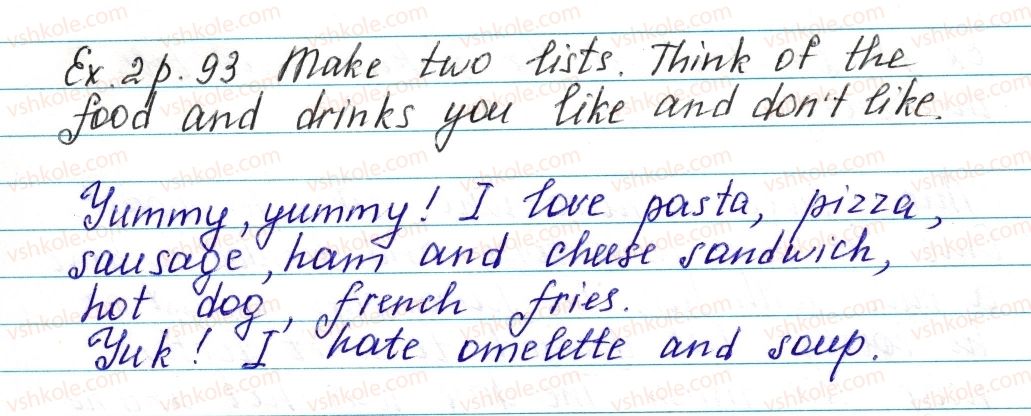 Ex. 2 p. 93 Make two lists. Think of the
food and drinks you like and don't like.
Yummy, yummy! I love pasta, pizza,
sausage, ham and cheese sandwich,
hot dog, french fries.
Yuk! I hate omelette and soup.